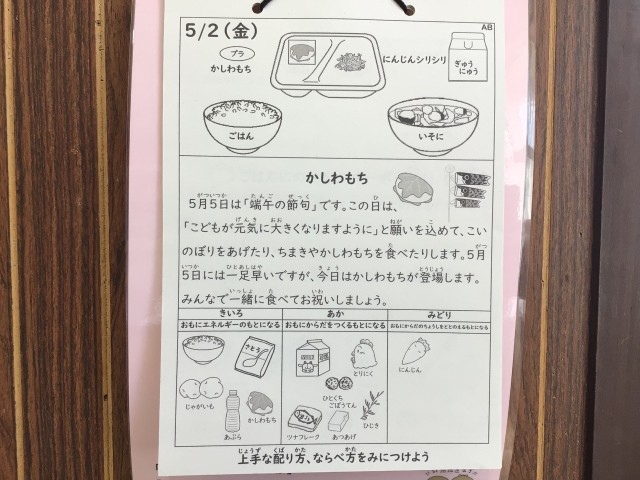 5/2(金)
AB
プラ
かしわもち
にんじんシリシリ
ぎゅう
にゅう
ごはん
いそに
かしわもち
がついつか たんご せっく ひ
5月5日は「端午の節句」です。この日は、
げんき おお ねが こ
「こどもが元気に大きくなりますように」と願いを込めて、こい
た がつ
のぼりをあげたり、ちまきやかしわもちを食べたりします。5月
いつか ひとあしはや きょう とうじょう
5日には一足早いですが、今日はかしわもちが登場します。
いっしょ た いわ
みんなで一緒に食べてお祝いしましょう。
きいろ あか みどり
おもにエネルギーのもとになる おもにからだをつくるもとになる おもにからだのちょうしをととのえるもとになる
さとう
とりにく
にんじん
じゃがいも
かしわもち
あぶら
ひとくち
ごぼうてん
ひじき
ツナフレーク
あつあげ
じょうず くば かた かた
上手な配り方、ならべ方をみにつけよう